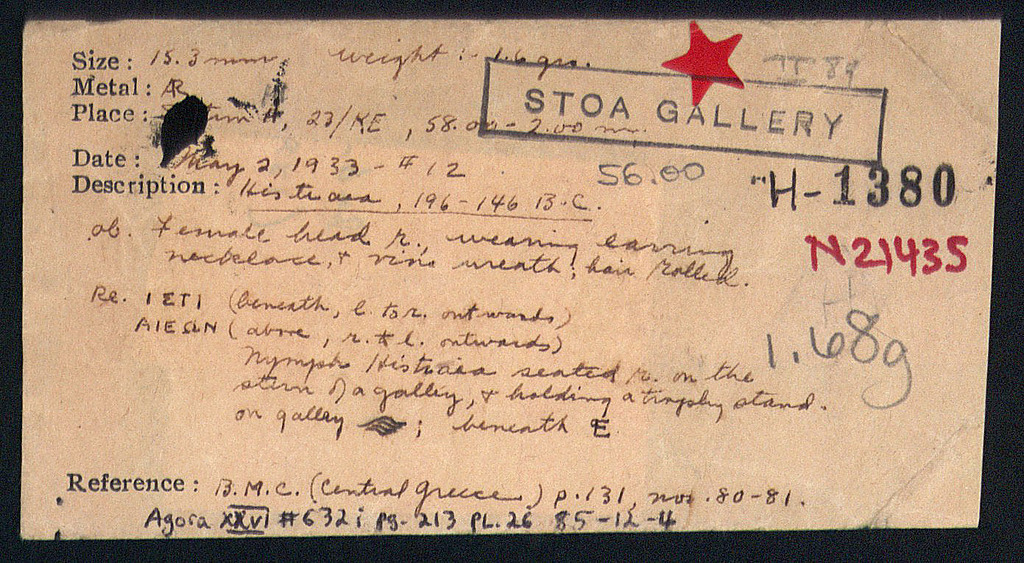 Size : 15.3 mm weight : 1.6 grs.
II 89
Metal : AR
STOA GALLERY
Place : H, 23/KE , 58.00 - 2.00 m.
Date : May 2, 1933 - # 12
56.00
H-1380
Description : Histiaea , 196-146 B.C.
ob. Female head r., wearing earring
necklace, + vine wreath ; hair rolled.
N21435
Re. ΙΣΤΙ (beneath, l. to r. outwards)
ΑΙΕΩΝ (above, r. to l. outwards)
1.68g
Nymph Histiaea seated r. on the
stern of a galley, + holding a trophy stand.
on galley ; beneath E
Reference : B.M.C. (Central Greece) p.131, nos. 80-81.
Agora XXVI #632i pg. 213 PL. 26 85-12-4